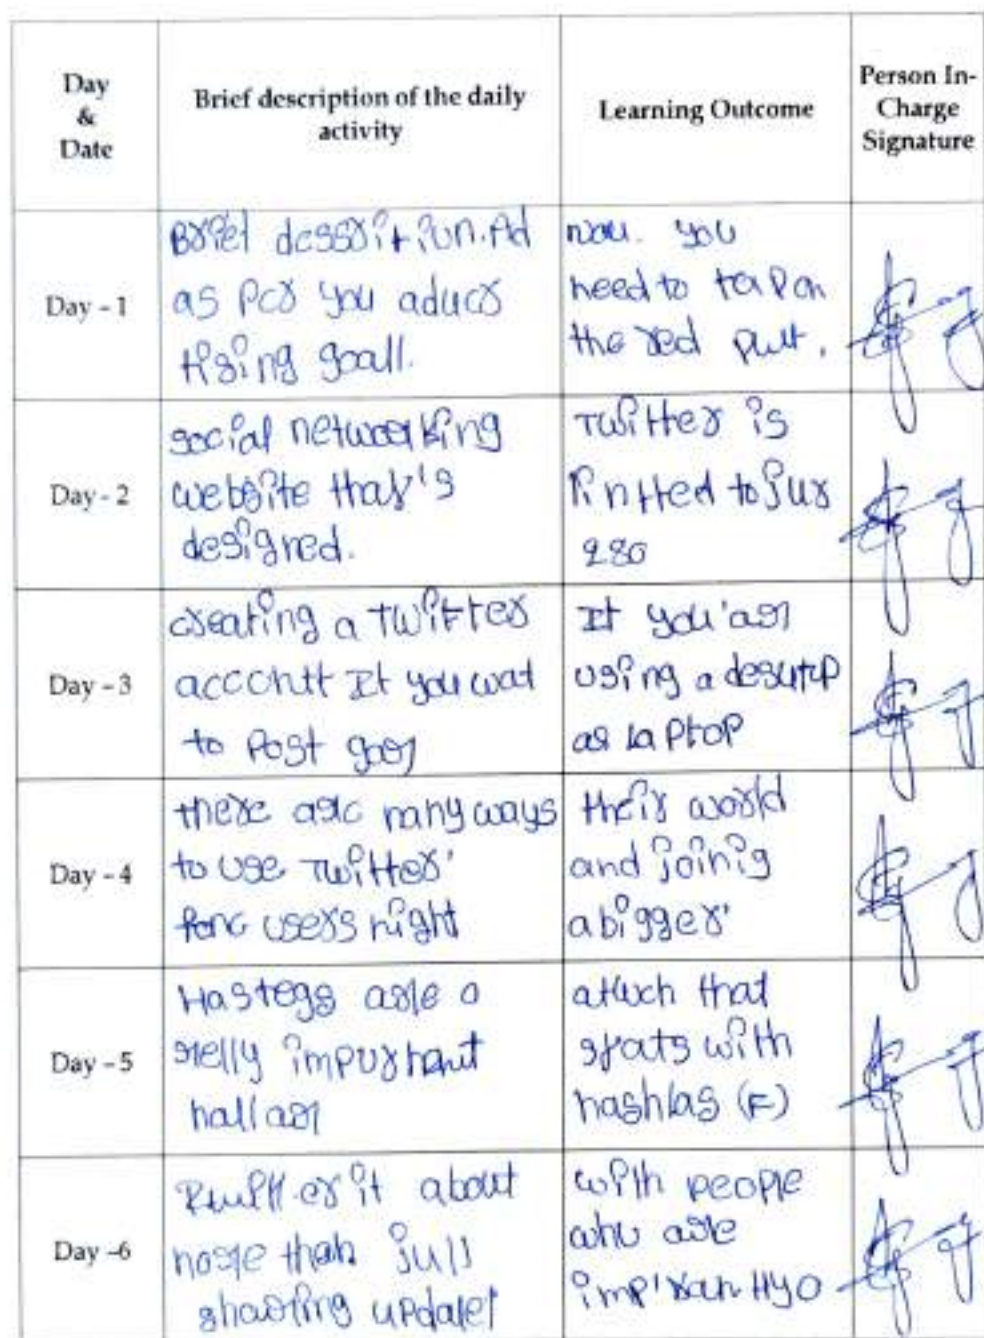 Day
&
Date
Brief description of the daily
activity
Learning Outcome
Person In-
Charge
Signature
Day - 1
Brief dessrition. Ad
as per you aducr
tising goall.
now. you
need to tap on
the red
Day - 2
social networking
website that's
designed.
Twitter is
to jus
280
Day - 3
creating a Twitter
accontt If you wat
to Post
If you'are
using a
or laptop
Day - 4
there are many ways
to use Twitter'
users night
their world
and joinig
a bigger'
Day - 5
Hastegs are a
relly impurtant
that
stats with
Day - 6
it about
more than
sharing update
with people
who are